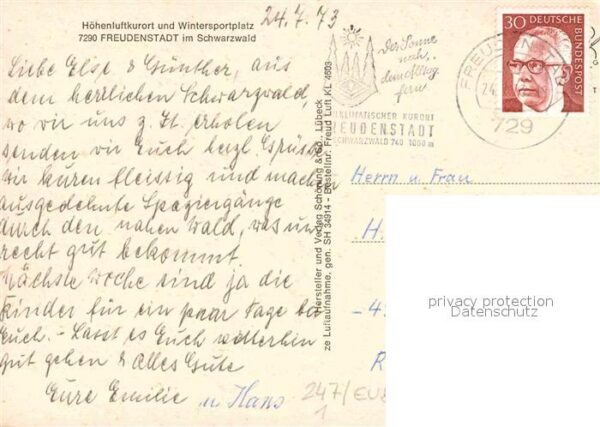 24.7.73
Höhenluftkurort und Wintersportplatz
7290 FREUDENSTADT im Schwarzwald
Liebe Else & Günther, aus
dem herrlichen Schwarzwald,
wo wir uns z. Zt. erholen
senden wir Euch herzl. Grüsse
Wir kuren fleissig und machen
ausgedehnte Spaziergänge
durch den nahen Wald, was uns
recht gut bekommt.
Nächste Woche sind ja die
Kinder für ein paar Tage bei
Euch. - Lasst es Euch weiterhin
gut gehen & Alles Gute
Eure Emilie u Hans
Hersteller und Verlag Schöning & Co., Lübeck
ze Luftaufnahme, gen. SH 34914 - Bestellnr. Freud Luft KL 4603
der Sonne
nah,
dem Alltag
fern
HEILKLIMATISCHER KURORT
FREUDENSTADT
SCHWARZWALD 740 1000 m
FREUDENSTADT
24.
729
30 DEUTSCHE
BUNDESPOST
Herrn u. Frau
H
- 4
R
privacy protection
Datenschutz
247/EU8
1